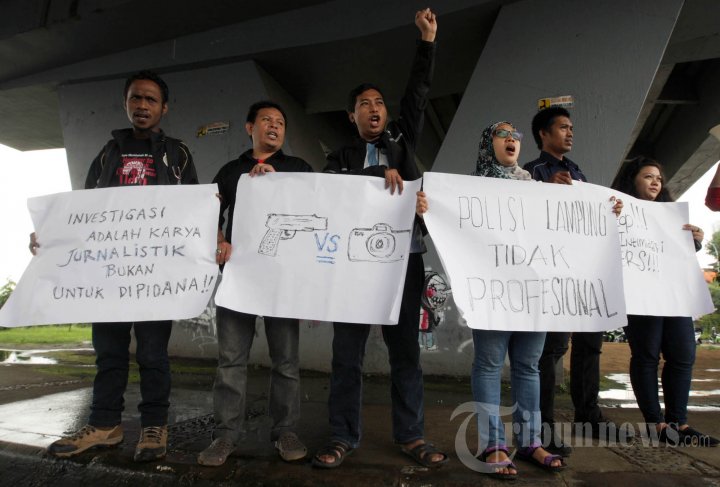 INVESTIGASI
ADALAH KARYA
JURNALISTIK
BUKAN
UNTUK DIPIDANA!!
VS
POLISI LAMPUNG
TIDAK
PROFESIONAL
Tribunnews.com